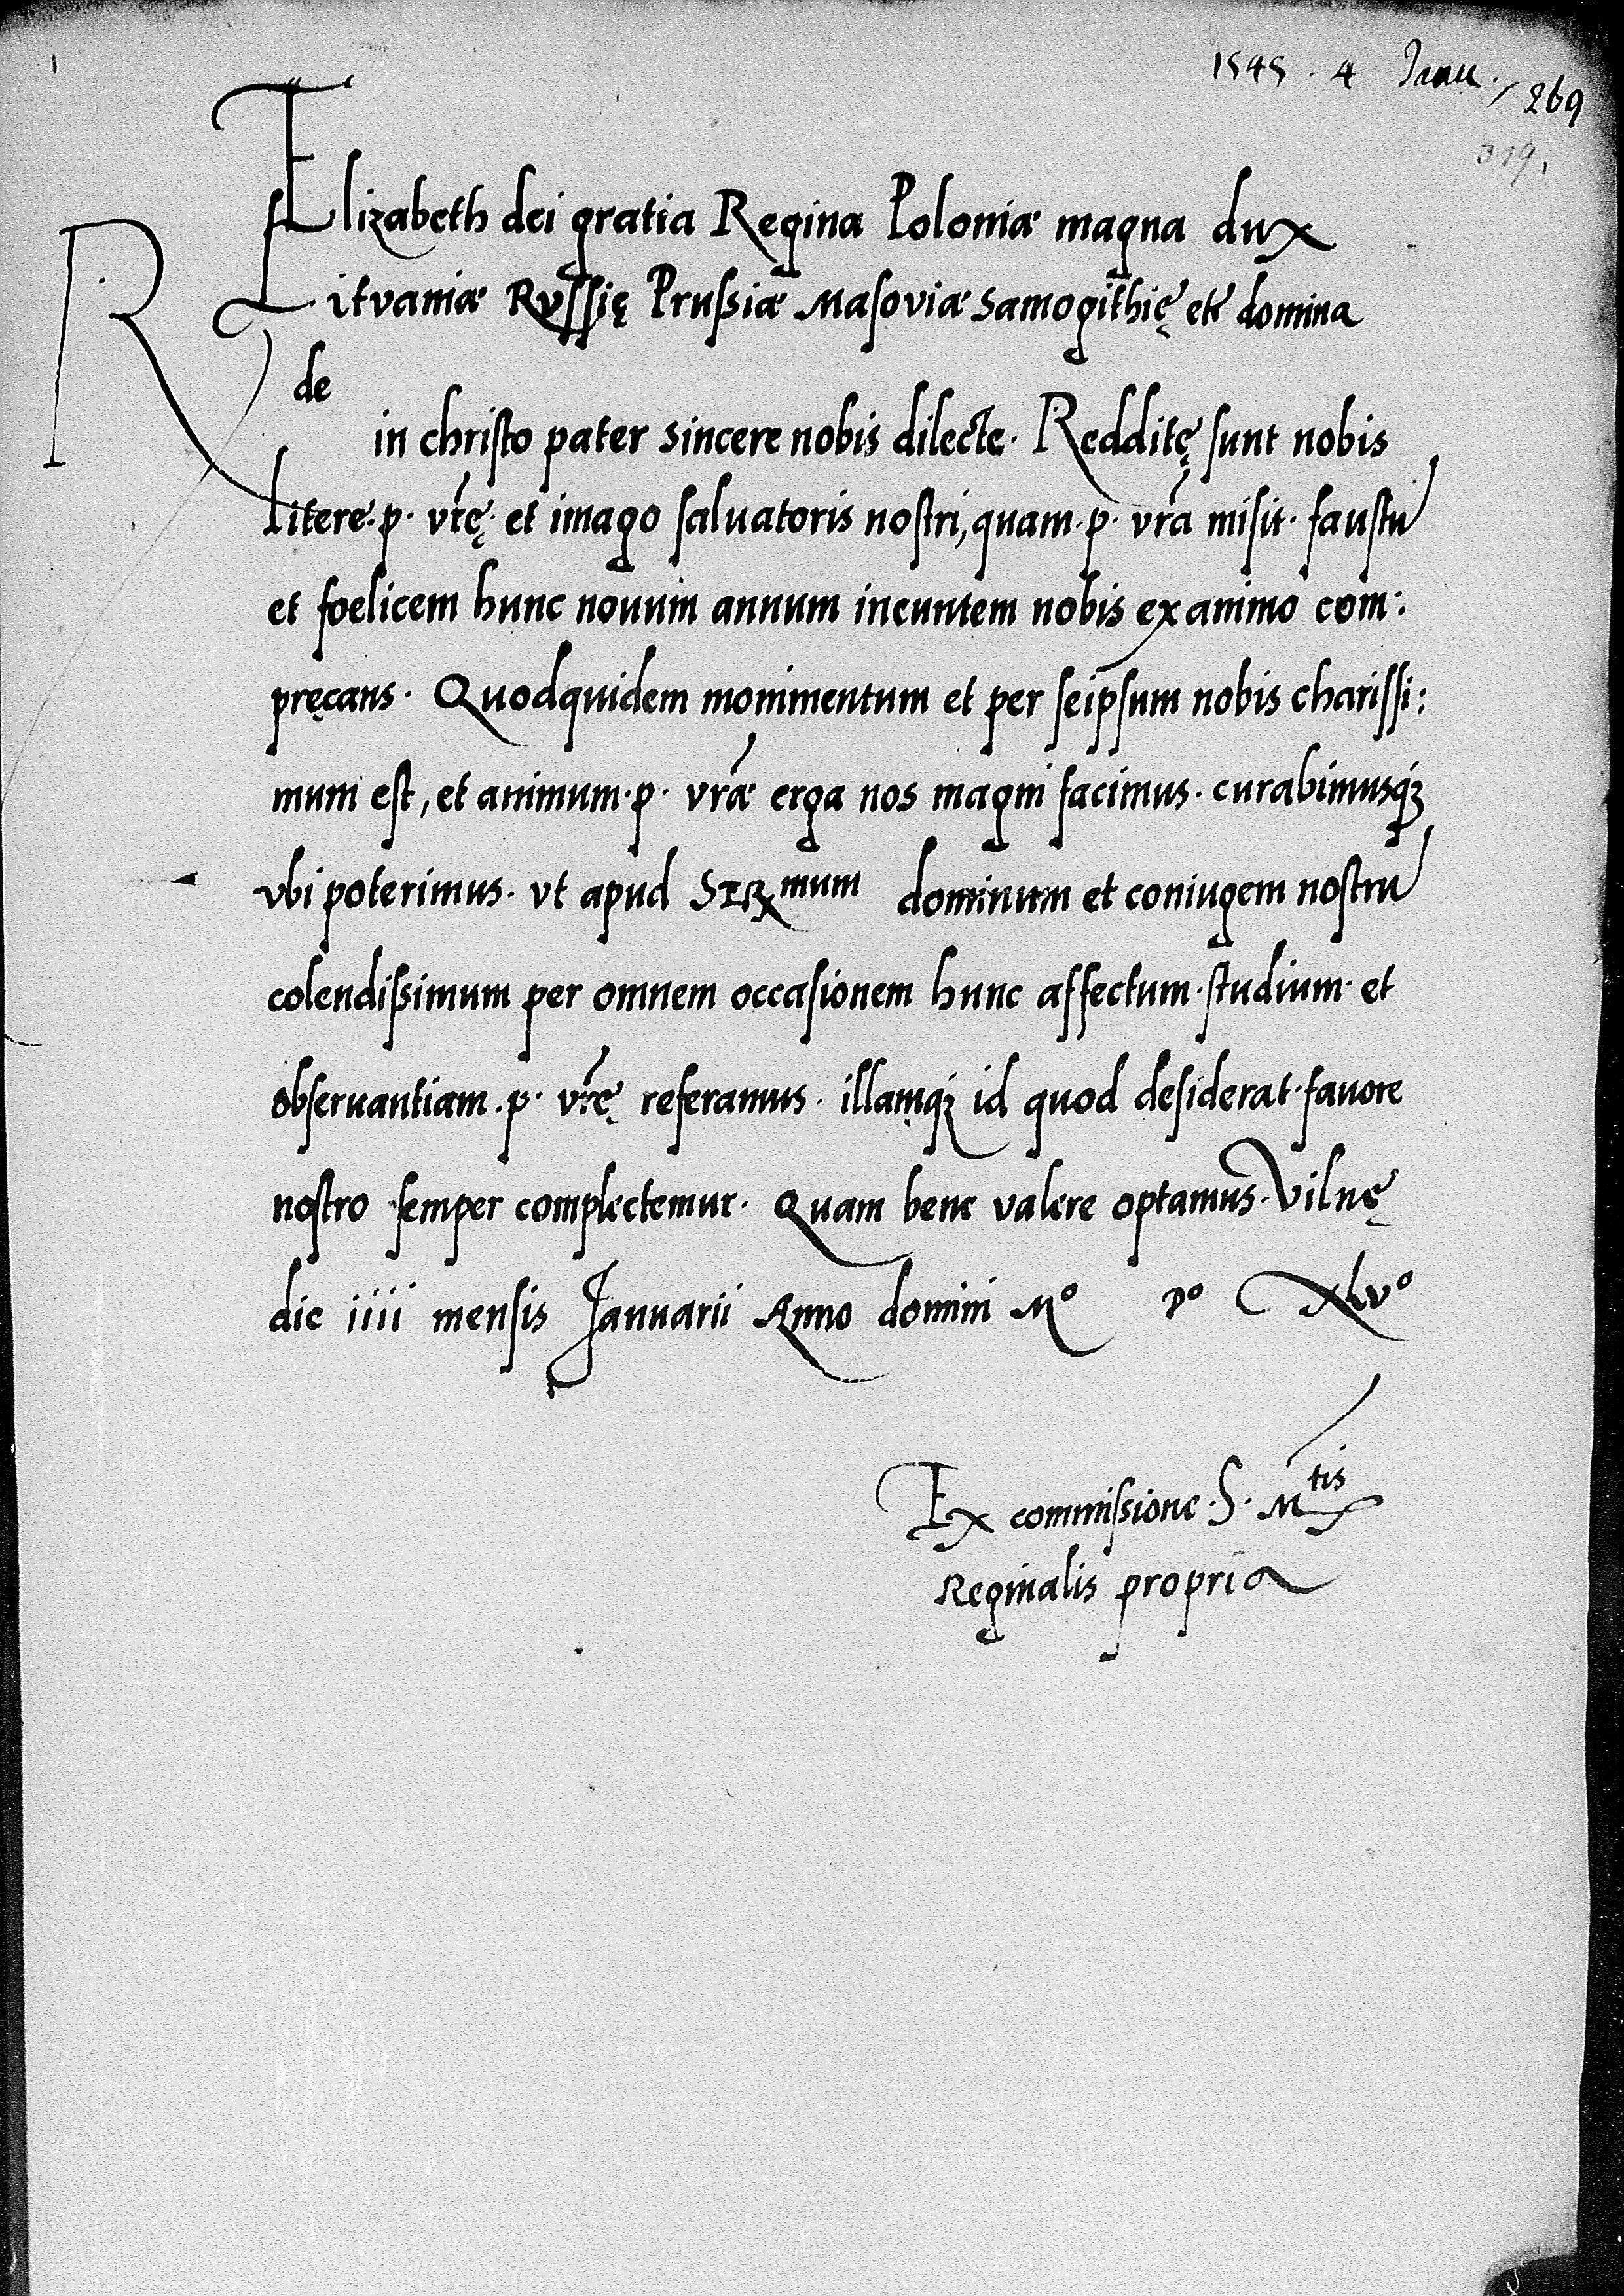 1545 . 4 Janu. / 269
319,
Elizabeth dei gratia Regina Poloniæ magna dux
Litvaniæ Russię Prussiæ Masoviæ Samogithię etc domina
Rde
in christo pater sincere nobis dilecte. Redditę sunt nobis
litere .p. vrę. et imago saluatoris nostri, quam .p. vra misit. faustū
et foelicem hunc nouum annum ineuntem nobis ex animo com:
pręcans. Quodquidem monimentum et per seipsum nobis charissi:
mum est, et animum .p. vræ erga nos magni facimus. curabimusq3
vbi poterimus. vt apud Sermum dominum et coniugem nostrū
colendissimum per omnem occasionem hunc affectum. studium. et
obseruantiam .p. vrę referamus. illamq3 id quod desiderat. fauore
nostro semper complectemur. Quam bene valere optamus. Vilnę
die iiii mensis Januarii Anno domini Mo Do Xlvo
Ex commissione .S. Mtis
Reginalis propria